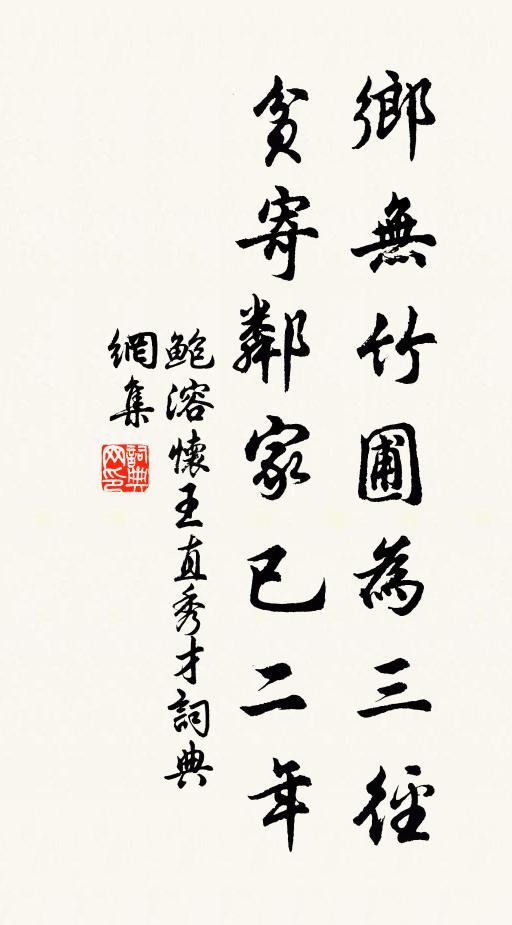 鄉無竹圃為三徑
貧寄鄰家已二年
鮑溶懷王直秀才詞典
網集
詞典
网印